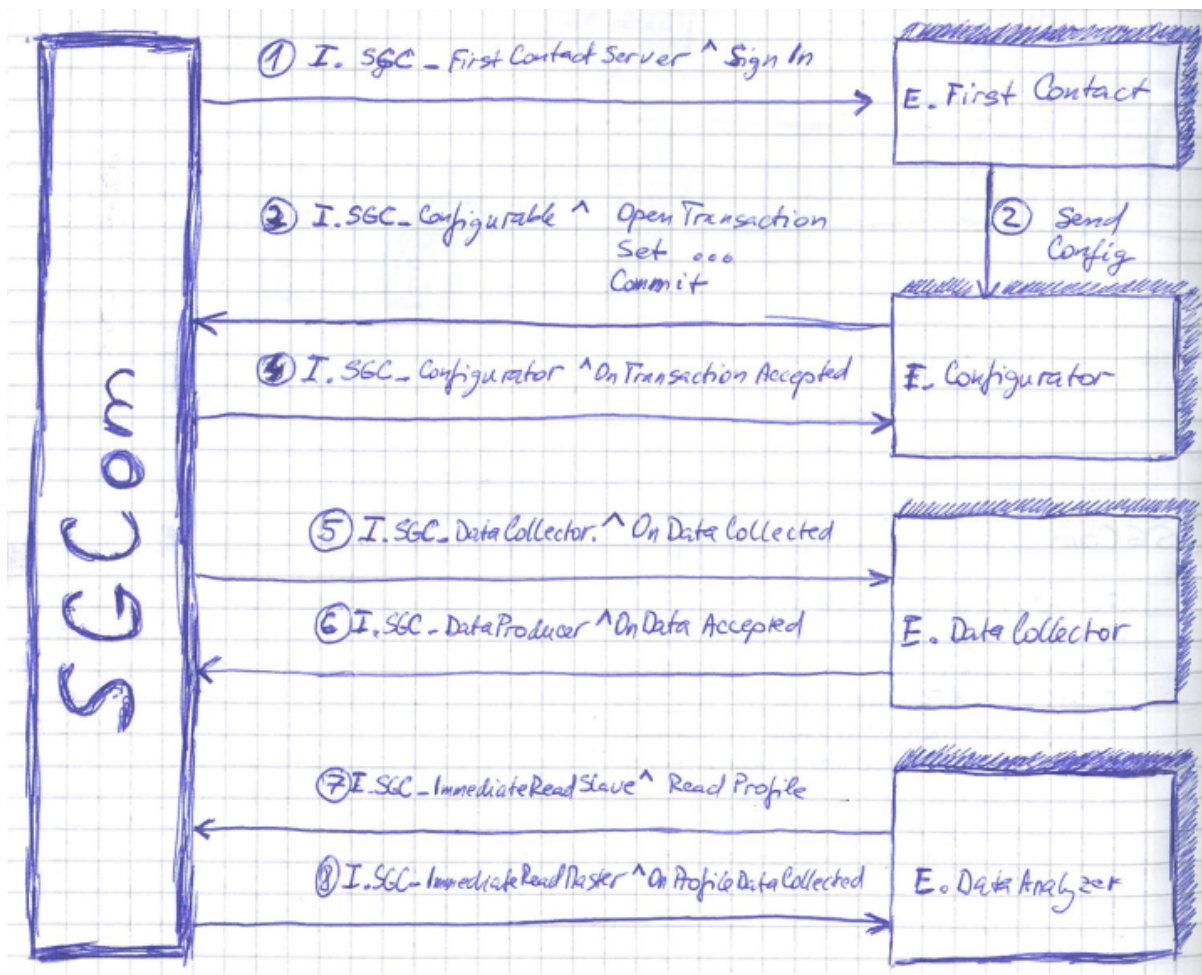 ① I. SGC_First Contact Server ^ Sign In
E. First Contact
③ I.SGC_Configurable ^ Open Transaction
Set ...
Commit
② Send
Config
④ I.SGC_Configurator ^OnTransaction Accepted
E. Configurator
SGCom
⑤ I.SGC_DataCollector.^ On Data Collected
⑥ I.SGC_DataProducer ^OnData Accepted
E. Data Collector
⑦ I.SGC_ImmediateReadSlave^ Read Profile
⑧ I.SGC_ImmediateReadMaster^On ProfileDataCollected
E. Data Analyzer